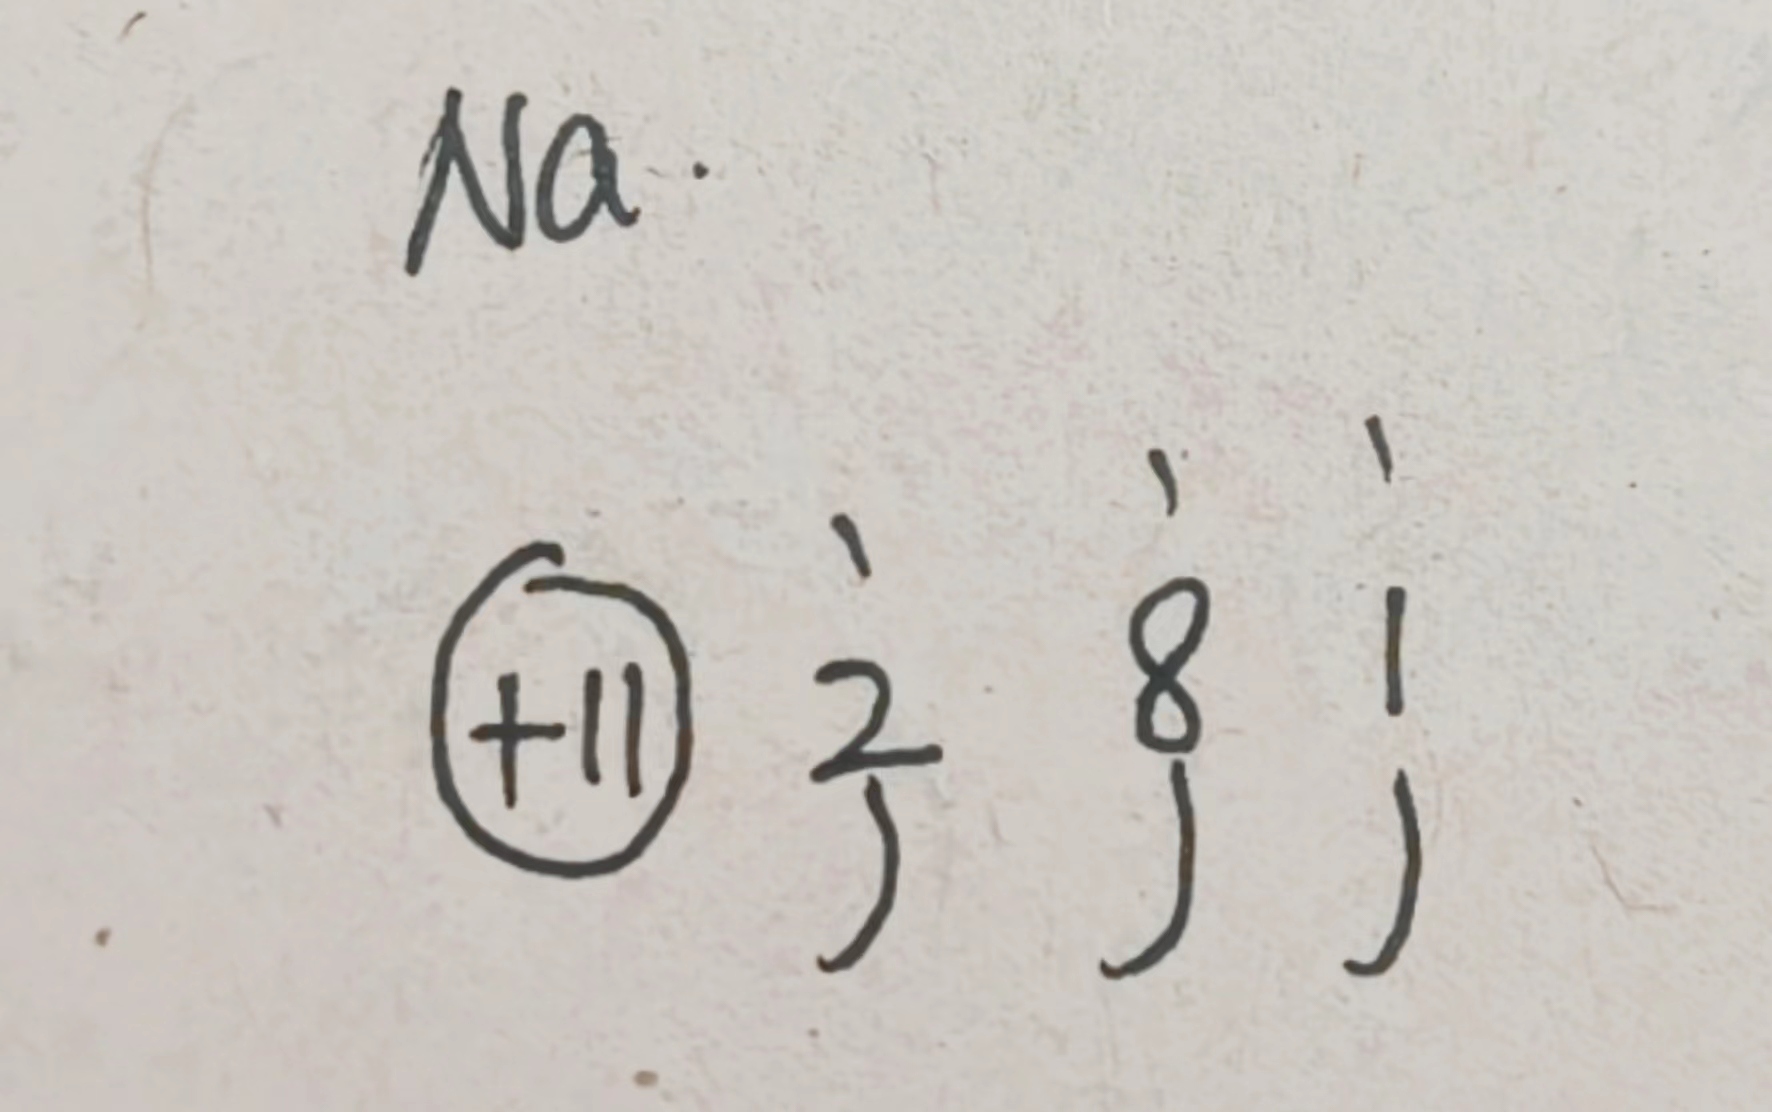 Na·
+11 2 8 1